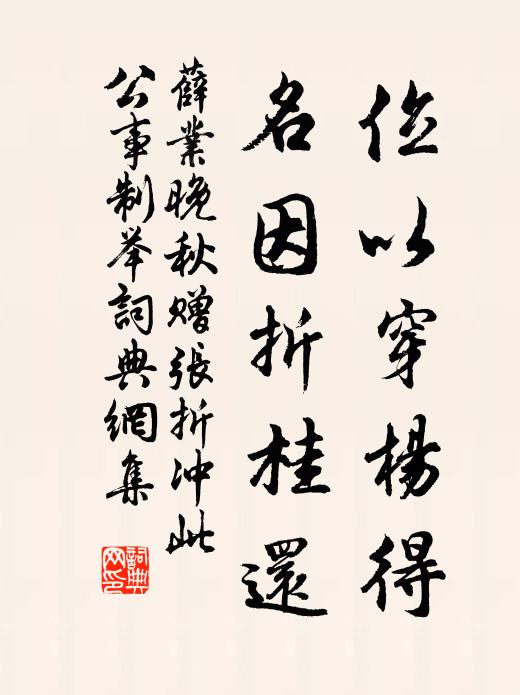 位以穿楊得
名因折桂還
薛業晚秋赠張折冲此
公事制举詞典網集
詞典网印